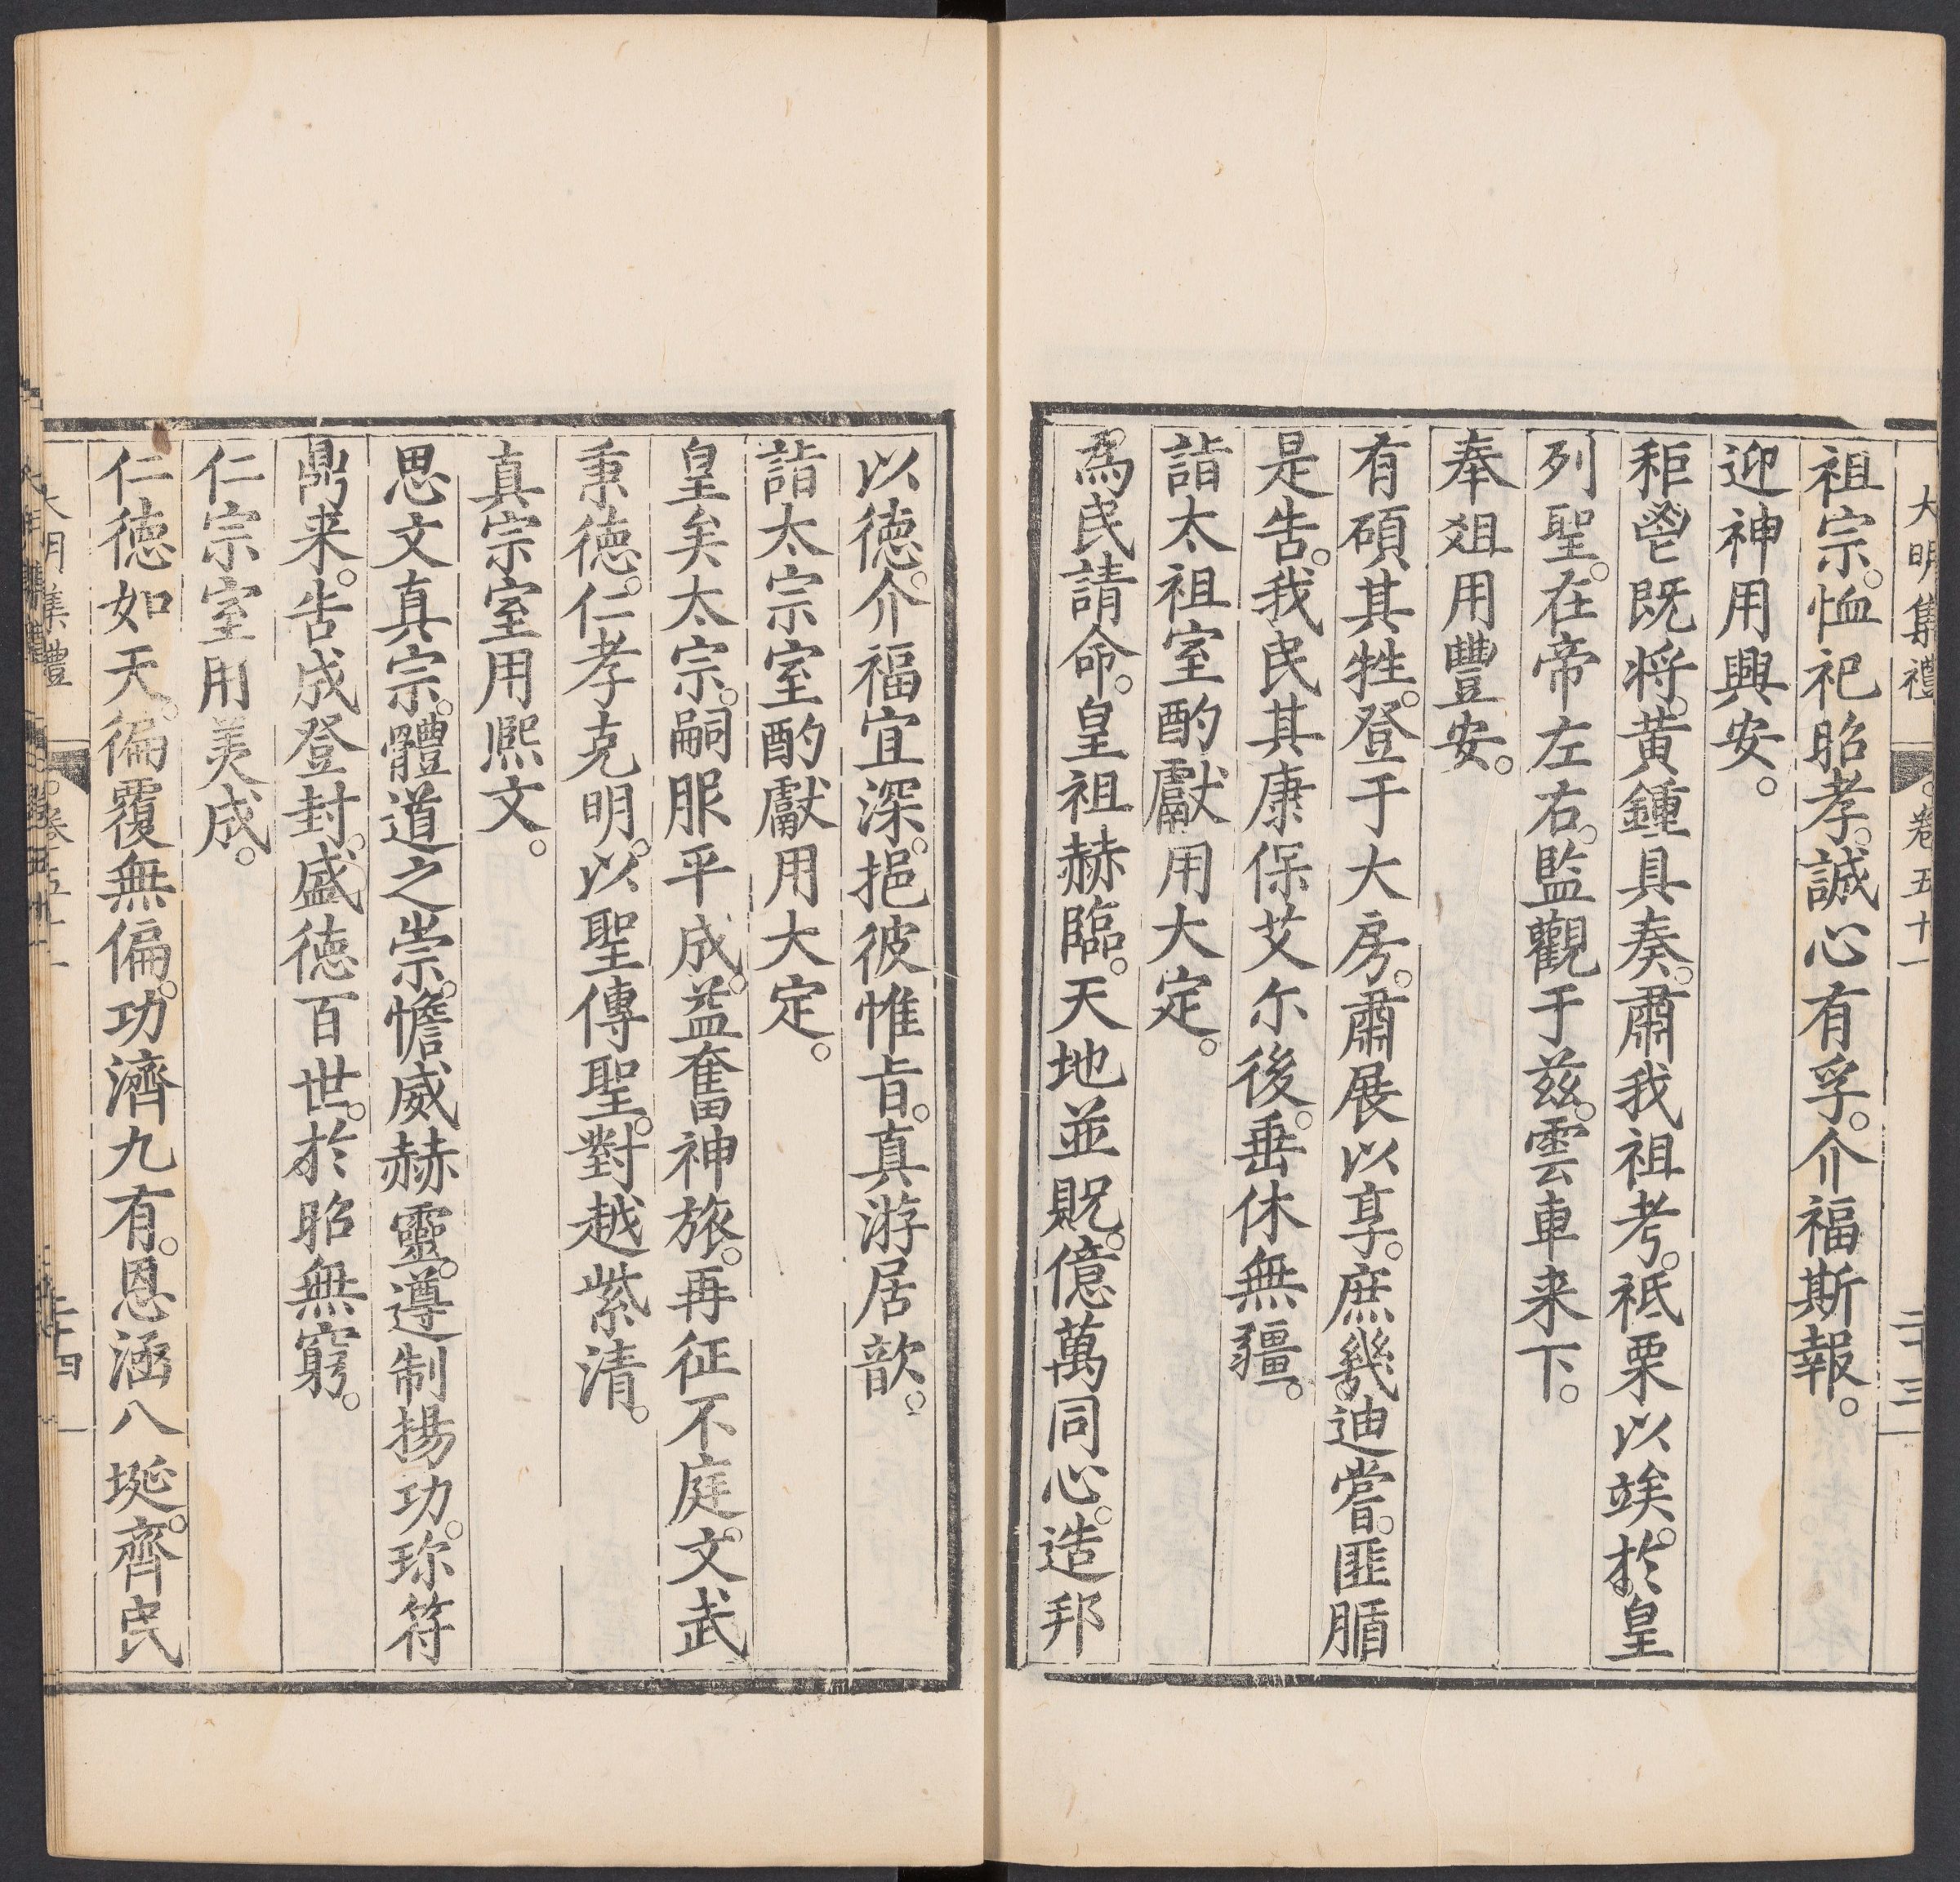 大明集禮 卷五十一 二十三
祖宗。恤祀昭孝。誠心有孚。介福斯報。
迎神用興安。
秬鬯既將。黄鍾具奏。肅我祖考。祗栗以竢。於皇
列聖。在帝左右。監觀于兹。雲車来下。
奉俎用豐安。
有碩其牲。登于大房。肅展以享。庶幾迪嘗。匪腯
是告。我民其康。保艾尔後。垂休無疆。
詣太祖室酌獻用大定。
為民請命。皇祖赫臨。天地並貺。億萬同心。造邦
以徳。介福宜深。挹彼惟旨。真游居歆。
詣太宗室酌獻用大定。
皇矣太宗。嗣服平成。益奮神旅。再征不庭。文武
秉徳。仁孝克明。以聖傳聖。對越紫清。
真宗室用熙文。
思文真宗。體道之崇。憺威赫靈。遵制揚功。珎符
鼎来。告成登封。盛徳百世。於昭無窮。
仁宗室用美成。
仁徳如天。徧覆無偏。功濟九有。恩涵八埏。齊民
大明集禮 卷五十一 二十四